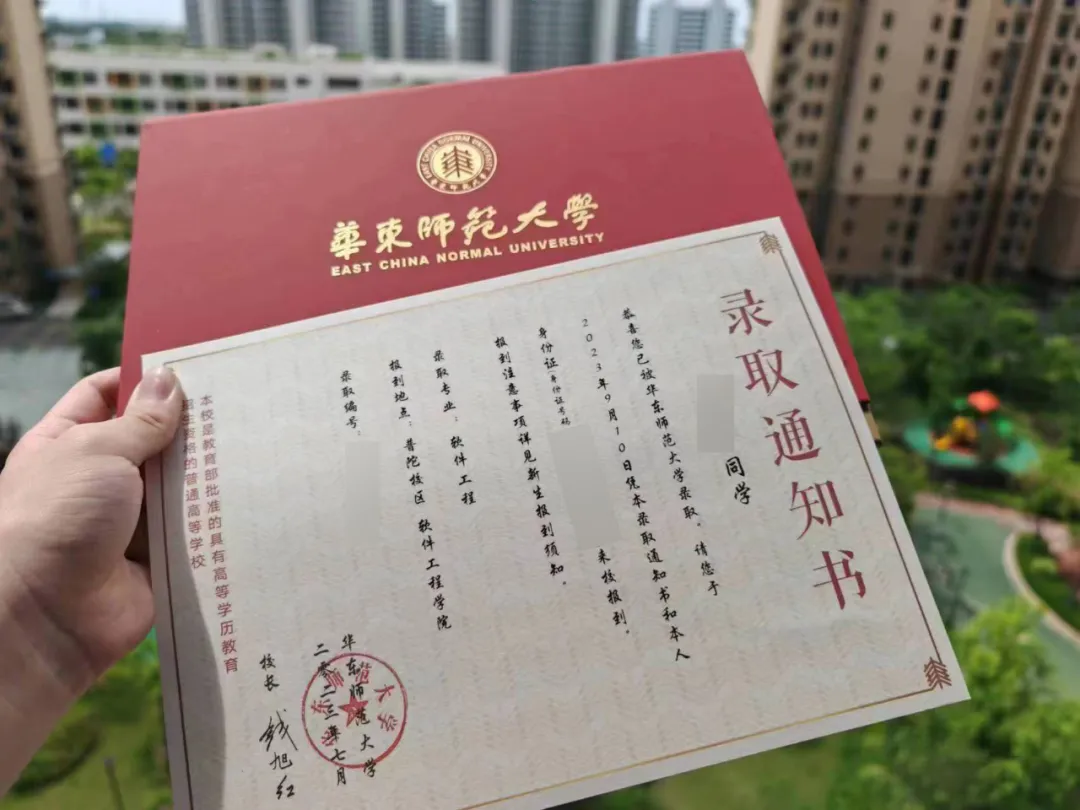 EAST CHINA NORMAL UNIVERSITY
華東師範大學
EAST CHINA NORMAL UNIVERSITY
录取通知书
同学
恭喜您已被华东师范大学录取。请您于
2023年9月10日凭本录取通知书和本人
身份证(身份证号码
来校报到。
报到注意事项详见新生报到须知。
录取专业:软件工程
报到地点:普陀校区 软件工程学院
录取编号:
华东师范大学
二零二三年七月
校长 钱旭红
本校是教育部批准的具有高等学历教育
招生资格的普通高等学校